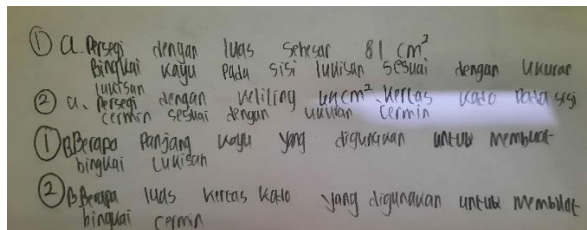 ① a. Persegi dengan luas sebesar 81 cm²
Bingkai kayu pada sisi lukisan sesuai dengan ukuran
lukisan
② a. Persegi dengan keliling 44 cm². Kertas kado pada sisi
cermin sesuai dengan ukuran cermin
① B Berapa Panjang kayu yang digunakan untuk membuat
bingkai Lukisan
② B Berapa luas kertas kado yang digunakan untuk membuat
bingkai cermin